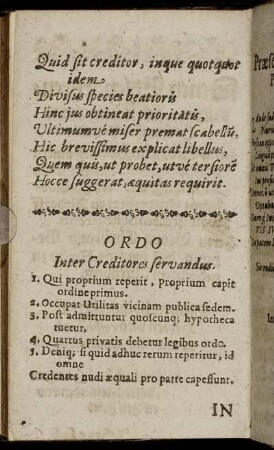 Quid sit creditor, inque quotquot
idem
Divisus species beatioris
Hinc jus obtineat prioritatis,
Ultimumvé miser premat scabellū,
Hic brevissimus explicat libellus,
Quem quis, ut probet, utvé tersiorē
Hocce suggerat, æquitas requirit.
ORDO
Inter Creditores servandus.
1. Qui proprium reperit, proprium capit
ordine primus.
2. Occupat Utilitas vicinam publica sedem.
3. Post admittuntur quoscunq; hypotheca
tuetur.
4. Quartus privatis debetur legibus ordo.
5. Deniq; si quid adhuc rerum reperitur, id
omne
Credentes nudi æquali pro parte capessunt.
IN